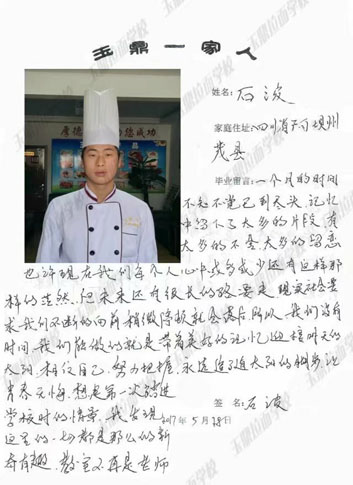 玉鼎一家人
姓名:石波
家庭住址:四川省阿坝州
茂县
毕业留言:一个月的时间
不知不觉已到尽头,记忆
中留下了太多的片段,有
太多的不舍,太多的留恋
也许现在我们每个人心中或多或少还有这样那
样的茫然,但未来还有很长的路要走,现实社会要
求我们不断的向前,稍微停
时间,我们能做的就是带着美好的记忆迎接明天的
太阳,相信自己,努力把握,永远追随太阳的脚步,让
青春无悔,想起第一次踏进
学校时的情景,我发现
这里的一切都是那么的新
奇有趣,教室不再是老师
签名:石波
2017年5月28日
玉鼎拉面学校